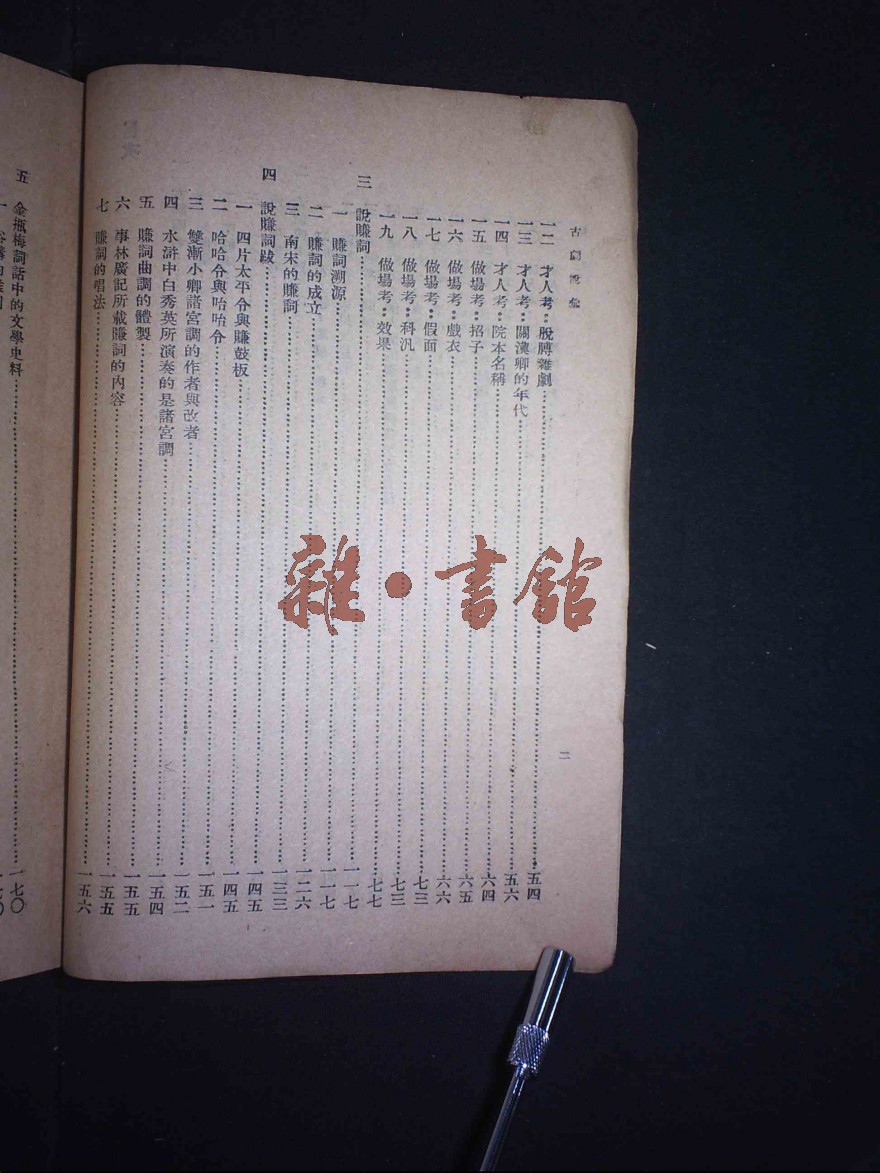 古劇說彙
二
一二 才人考•脫膊雜劇……五四
一三 才人考•關漢卿的年代……五六
一四 才人考•院本名稱……六四
一五 做場考•招子……六五
一六 做場考•戲衣……六六
一七 做場考•假面……七三
一八 做場考•科汎……七三
一九 做場考•效果……七七
三 說賺詞……一一七
一 賺詞溯源……一一七
二 賺詞的成立……一二六
三 南宋的賺詞……一三三
四 說賺詞跋……一四五
一 四片太平令與賺鼓板……一四五
二 哈哈令與咍咍令……一五一
三 雙漸小卿諸宮調的作者與改者……一五二
四 水滸中白秀英所演奏的是諸宮調……一五四
五 賺詞曲調的體製……一五五
六 事林廣記所載賺詞的內容……一五五
七 賺詞的唱法……一五六
五 金瓶梅詞話中的文學史料……一七〇
雜•書館